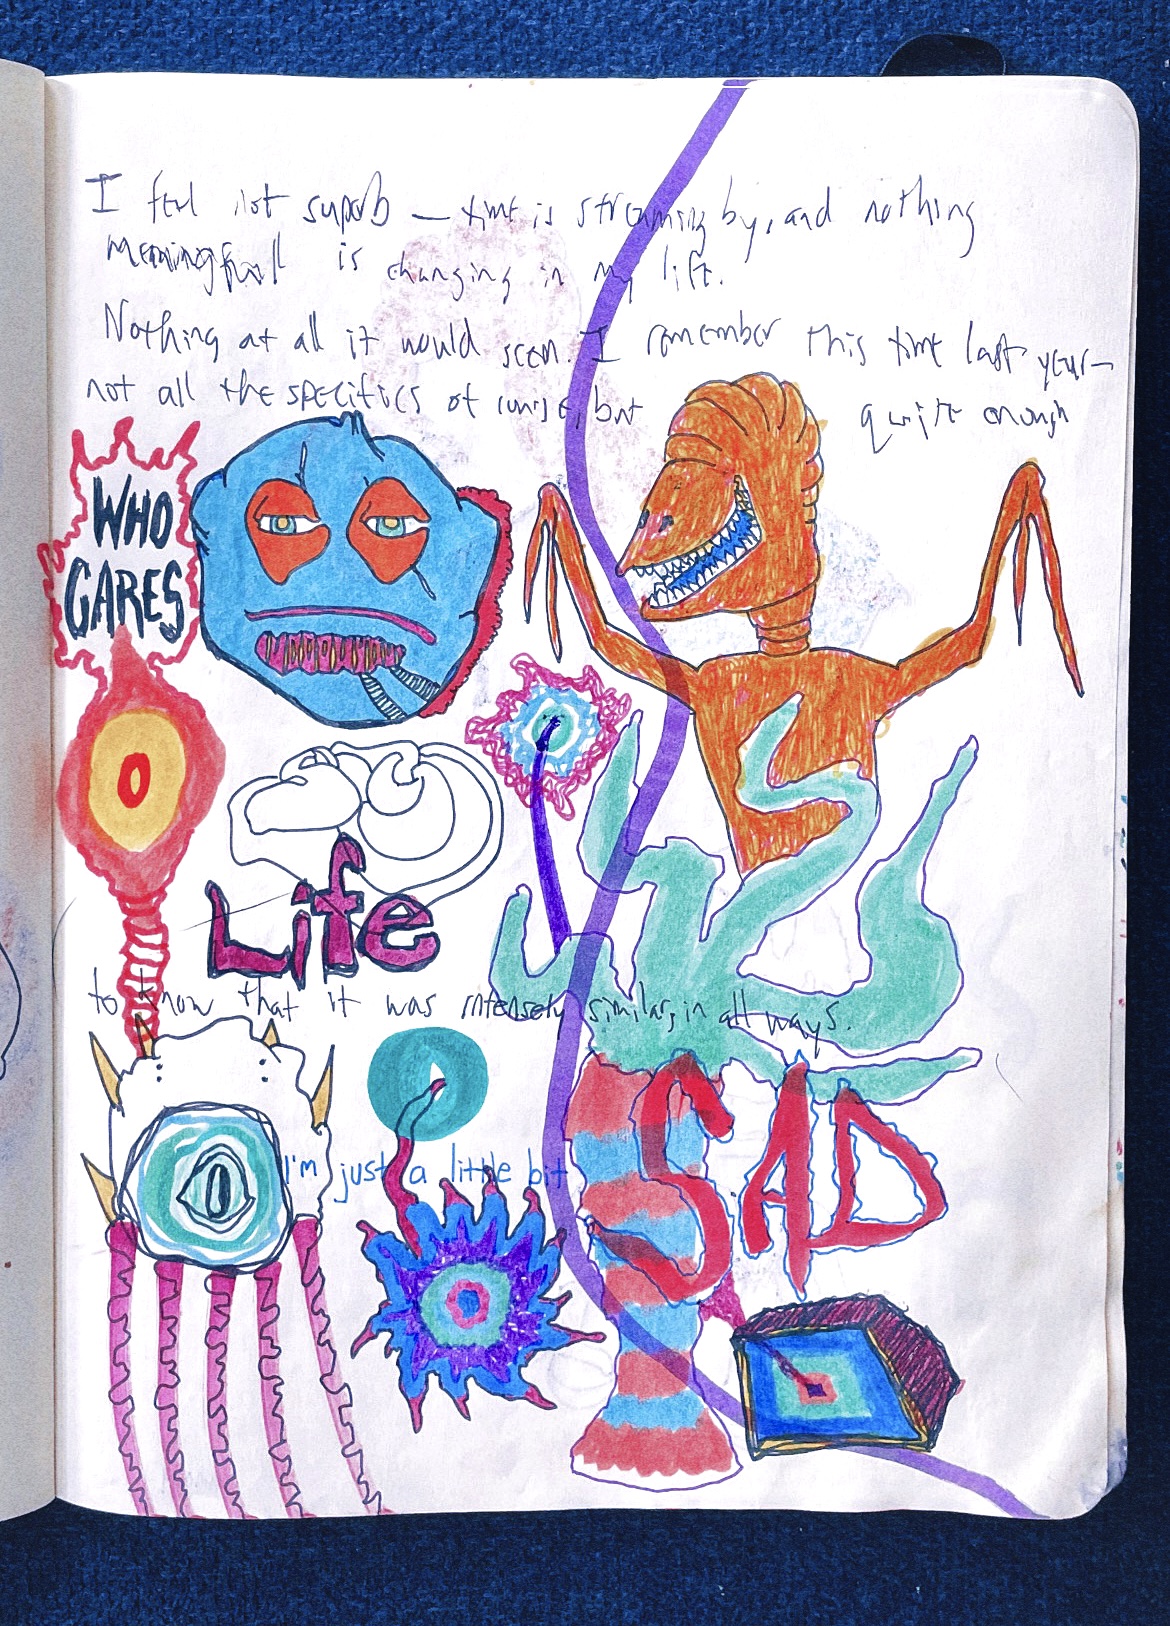 I feel not superb — time is streaming by, and nothing
meaningfull is changing in my life.
Nothing at all it would seem. I remember this time last year—
not all the specifics of course, but quite enough
WHO
CARES
Life
to know that it was intensely similar, in all ways.
I'm just a little bit
SAD